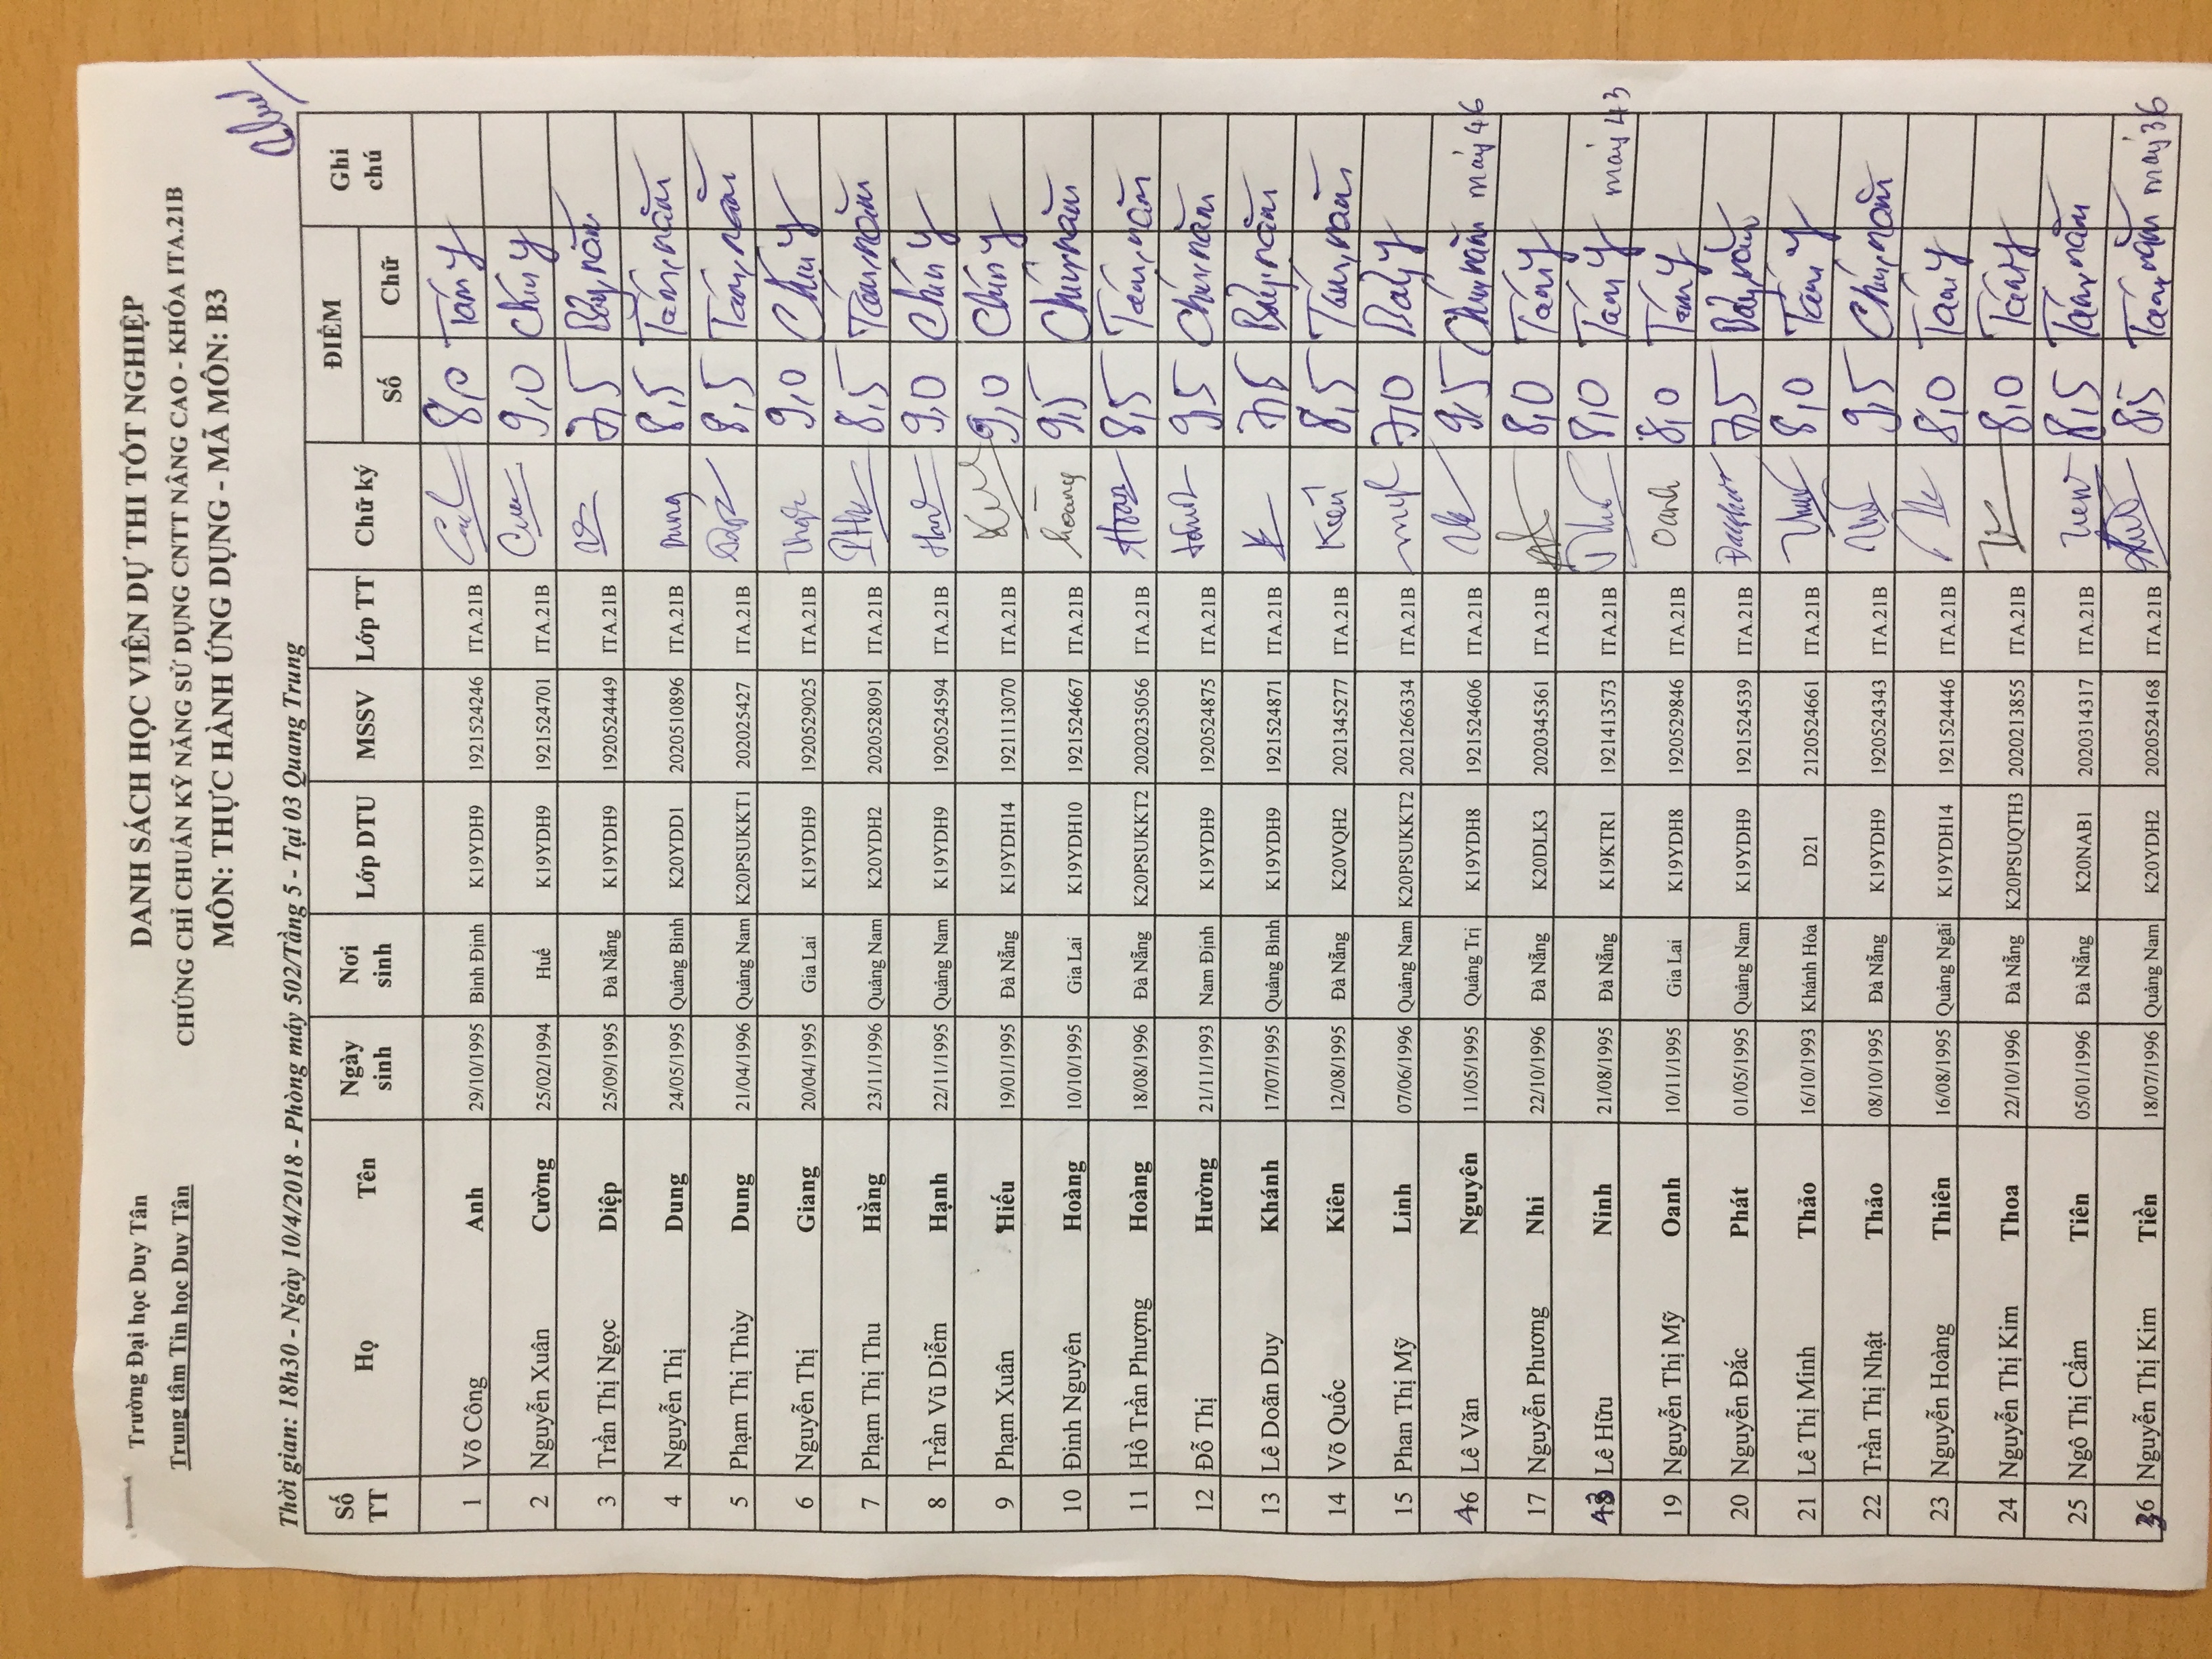 Trường Đại học Duy Tân
Trung tâm Tin học Duy Tân
DANH SÁCH HỌC VIÊN DỰ THI TỐT NGHIỆP
CHỨNG CHỈ CHUẨN KỸ NĂNG SỬ DỤNG CNTT NÂNG CAO - KHÓA ITA.21B
MÔN: THỰC HÀNH ỨNG DỤNG - MÃ MÔN: B3
Thời gian: 18h30 - Ngày 10/4/2018 - Phòng máy 502/Tầng 5 - Tại 03 Quang Trung
Số TT Họ Tên Ngày sinh Nơi sinh Lớp DTU MSSV Lớp TT Chữ ký ĐIỂM Ghi chú
Số Chữ
1 Võ Công Anh 29/10/1995 Bình Định K19YDH9 1921524246 ITA.21B 8,0 Tám y
2 Nguyễn Xuân Cường 25/02/1994 Huế K19YDH9 1921524701 ITA.21B 9,0 Chín y
3 Trần Thị Ngọc Diệp 25/09/1995 Đà Nẵng K19YDH9 1920524449 ITA.21B 7,5 Bảy, năm
4 Nguyễn Thị Dung 24/05/1995 Quảng Bình K20YDD1 2020510896 ITA.21B Dung 8,5 Tám, năm
5 Phạm Thị Thùy Dung 21/04/1996 Quảng Nam K20PSUKKT1 202025427 ITA.21B 8,5 Tám, năm
6 Nguyễn Thị Giang 20/04/1995 Gia Lai K19YDH9 1920529025 ITA.21B 9,0 Chín y
7 Phạm Thị Thu Hằng 23/11/1996 Quảng Nam K20YDH2 2020528091 ITA.21B 8,5 Tám, năm
8 Trần Vũ Diễm Hạnh 22/11/1995 Quảng Nam K19YDH9 1920524594 ITA.21B 9,0 Chín y
9 Phạm Xuân Hiếu 19/01/1995 Đà Nẵng K19YDH14 1921113070 ITA.21B 9,0 Chín y
10 Đinh Nguyên Hoàng 10/10/1995 Gia Lai K19YDH10 1921524667 ITA.21B hoàng 9,5 Chín, năm
11 Hồ Trần Phượng Hoàng 18/08/1996 Đà Nẵng K20PSUKKT2 2020235056 ITA.21B 8,5 Tám, năm
12 Đỗ Thị Hường 21/11/1993 Nam Định K19YDH9 1920524875 ITA.21B 9,5 Chín, năm
13 Lê Doãn Duy Khánh 17/07/1995 Quảng Bình K19YDH9 1921524871 ITA.21B 7,5 Bảy, năm
14 Võ Quốc Kiên 12/08/1995 Đà Nẵng K20VQH2 2021345277 ITA.21B Kiên 8,5 Tám, năm
15 Phan Thị Mỹ Linh 07/06/1996 Quảng Nam K20PSUKKT2 2021266334 ITA.21B 7,0 Bảy y
46 Lê Văn Nguyên 11/05/1995 Quảng Trị K19YDH8 1921524606 ITA.21B 9,5 Chín, năm máy 46
17 Nguyễn Phương Nhi 22/10/1996 Đà Nẵng K20DLK3 2020345361 ITA.21B 8,0 Tám y
43 Lê Hữu Ninh 21/08/1995 Đà Nẵng K19KTR1 1921413573 ITA.21B 8,0 Tám y máy 43
19 Nguyễn Thị Mỹ Oanh 10/11/1995 Gia Lai K19YDH8 1920529846 ITA.21B Oanh 8,0 Tám y
20 Nguyễn Đắc Phát 01/05/1995 Quảng Nam K19YDH9 1921524539 ITA.21B 7,5 Bảy, năm
21 Lê Thị Minh Thảo 16/10/1993 Khánh Hòa D21 2120524661 ITA.21B 8,0 Tám y
22 Trần Thị Nhật Thảo 08/10/1995 Đà Nẵng K19YDH9 1920524343 ITA.21B 9,5 Chín, năm
23 Nguyễn Hoàng Thiên 16/08/1995 Quảng Ngãi K19YDH14 1921524446 ITA.21B 8,0 Tám y
24 Nguyễn Thị Kim Thoa 22/10/1996 Đà Nẵng K20PSUQTH3 2020213855 ITA.21B 8,0 Tám y
25 Ngô Thị Cẩm Tiên 05/01/1996 Đà Nẵng K20NAB1 2020314317 ITA.21B 8,5 Tám, năm
36 Nguyễn Thị Kim Tiền 18/07/1996 Quảng Nam K20YDH2 2020524168 ITA.21B 8,5 Tám, năm máy 36